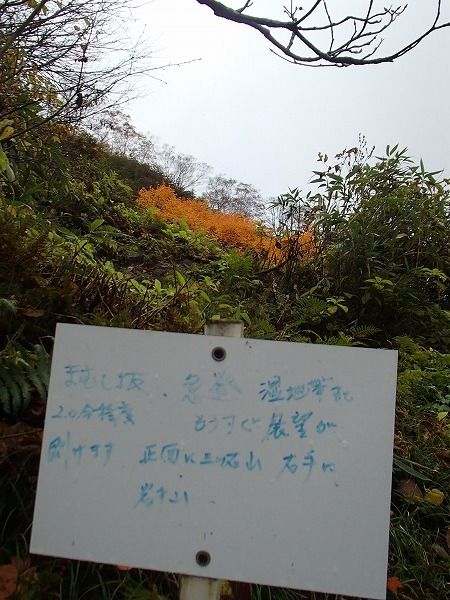 まむし坂、急登 湿地帯
20分程度 もうすぐ展望が
開けます 正面に三ツ石山 右手に
岩手山